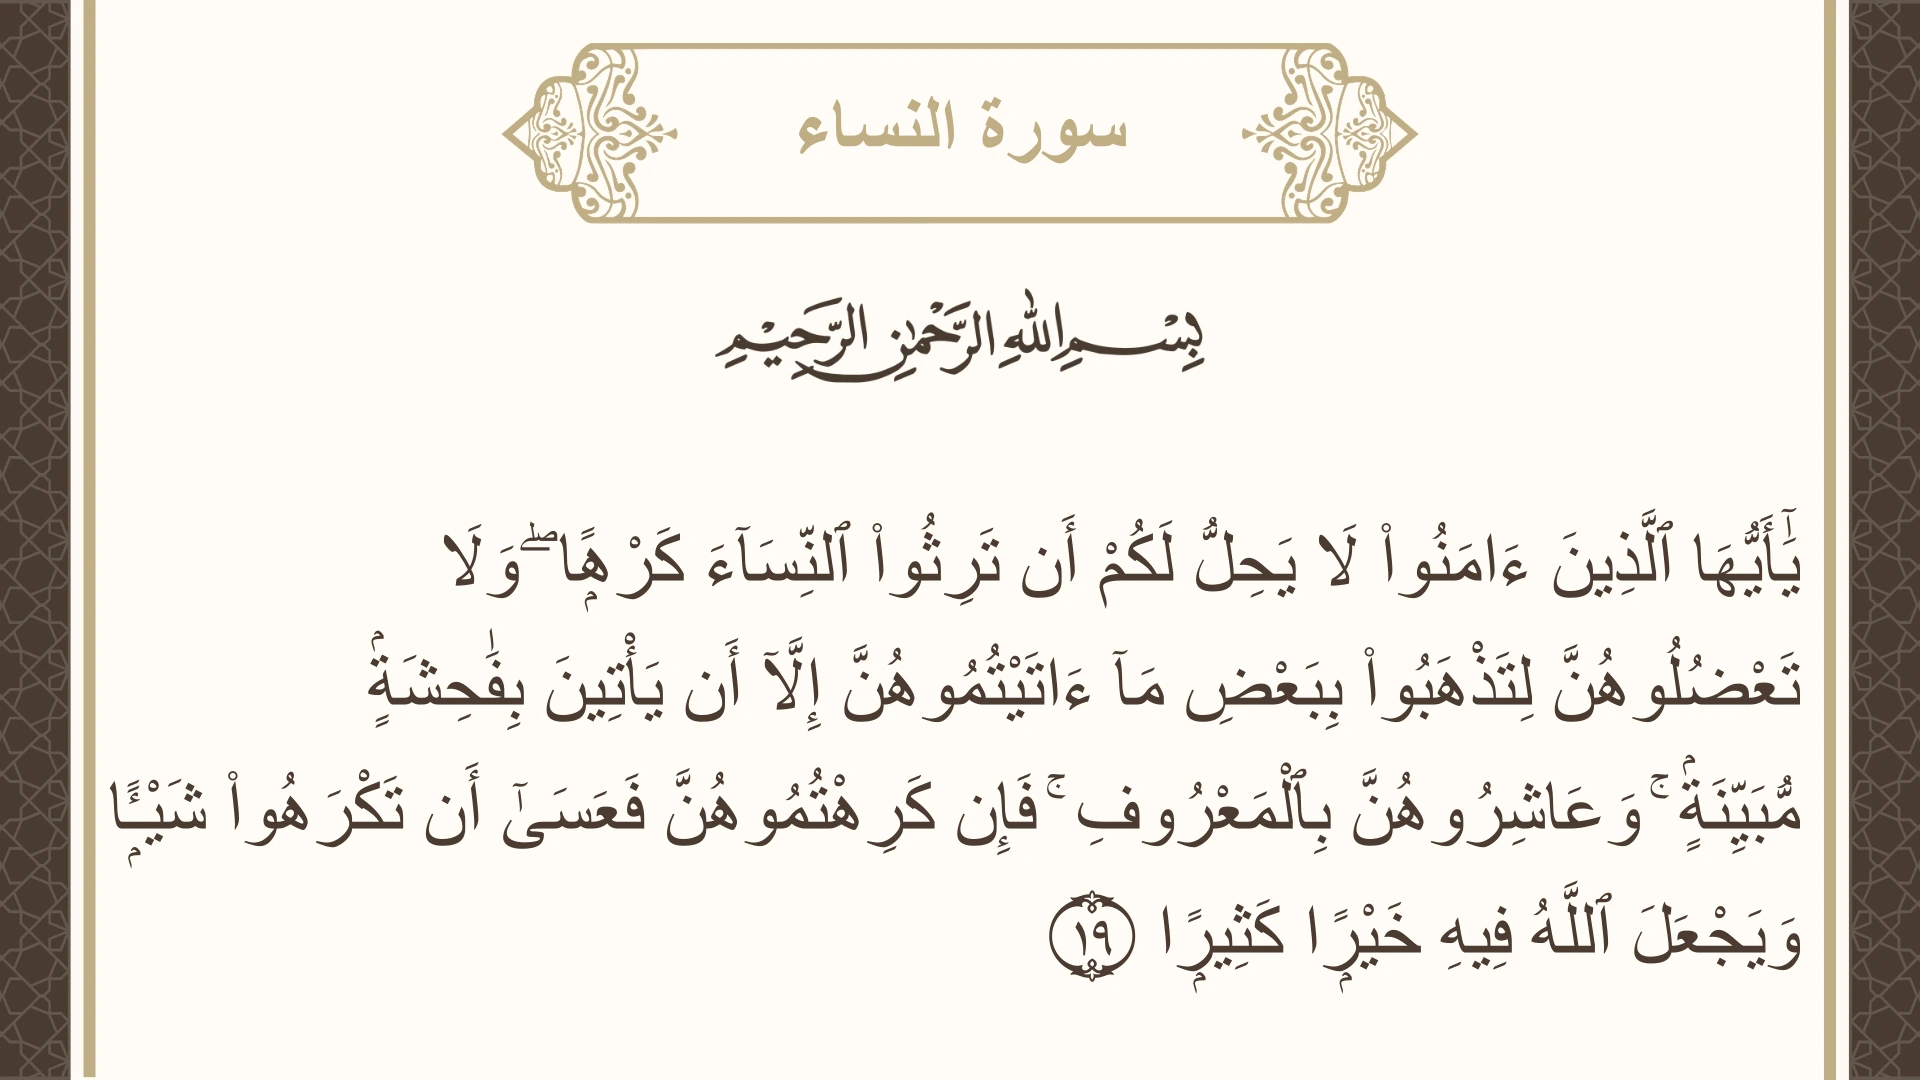 سورة النساء
بِسْمِ اللهِ الرَّحْمٰنِ الرَّحِيْمِ
يَٰٓأَيُّهَا ٱلَّذِينَ ءَامَنُوا۟ لَا يَحِلُّ لَكُمْ أَن تَرِثُوا۟ ٱلنِّسَآءَ كَرْهًۭا ۖ وَلَا
تَعْضُلُوهُنَّ لِتَذْهَبُوا۟ بِبَعْضِ مَآ ءَاتَيْتُمُوهُنَّ إِلَّآ أَن يَأْتِينَ بِفَٰحِشَةٍۢ
مُّبَيِّنَةٍۢ ۚ وَعَاشِرُوهُنَّ بِٱلْمَعْرُوفِ ۚ فَإِن كَرِهْتُمُوهُنَّ فَعَسَىٰٓ أَن تَكْرَهُوا۟ شَيْـًۭٔا
وَيَجْعَلَ ٱللَّهُ فِيهِ خَيْرًۭا كَثِيرًۭا ١٩